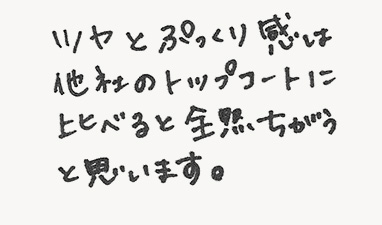 ツヤとぷっくり感は
他社のトップコートに
比べると全然ちがう
と思います。